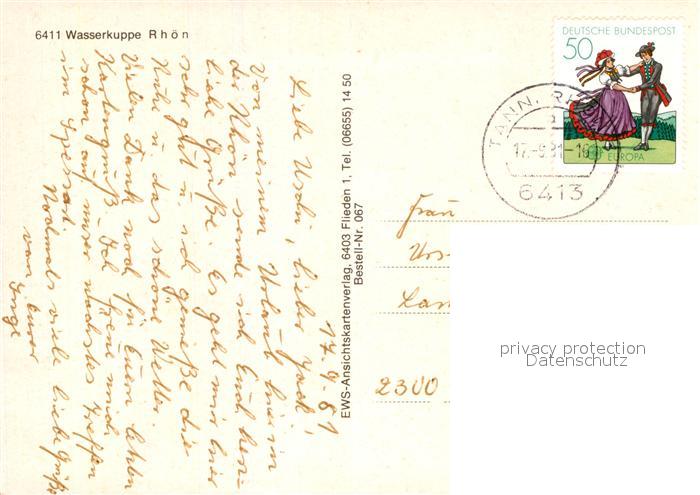 6411 Wasserkuppe Rhön
17.9.81
Liebe Uschi, lieber Jack!
Von meinem Urlaub hier in
der Rhön sende ich Euch herz-
liche Grüße. Es geht mir hier
sehr gut u. ich genieße die
Ruhe u. das schöne Wetter.
Vielen Dank noch für Euern letzten
Kartengruß. Ich freue mich
schon auf unser nächstes Treffen
im Spessart.
Nochmals viele liebe Grüße
von Eurer
Inge
EWS-Ansichtskartenverlag, 6403 Flieden 1, Tel. (06655) 14 50
Bestell-Nr. 067
DEUTSCHE BUNDESPOST
50
EUROPA
TANN, RH
17.-9.81-16
6413
Frau
2300
privacy protection
Datenschutz